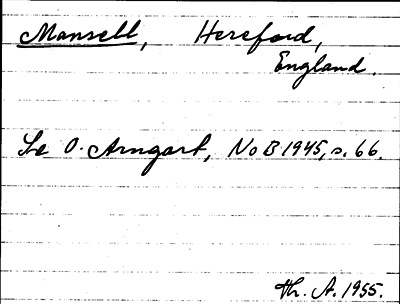 Mansell, Hereford,
England.
Se O. Arngart, NoB 1945, s. 66.
Th. A. 1955.